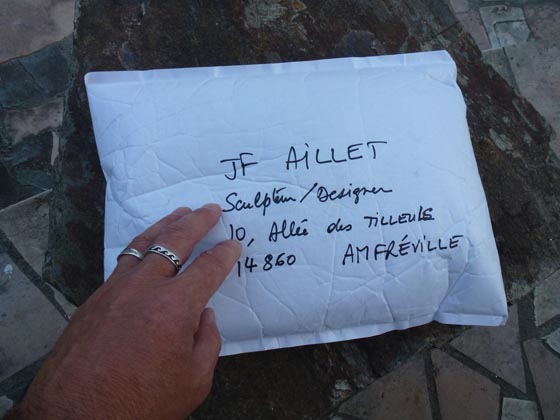 JF AiLLET
Sculpteur/Designer
10, Allée des TiLLEULS
14860 AMFRÉVILLE